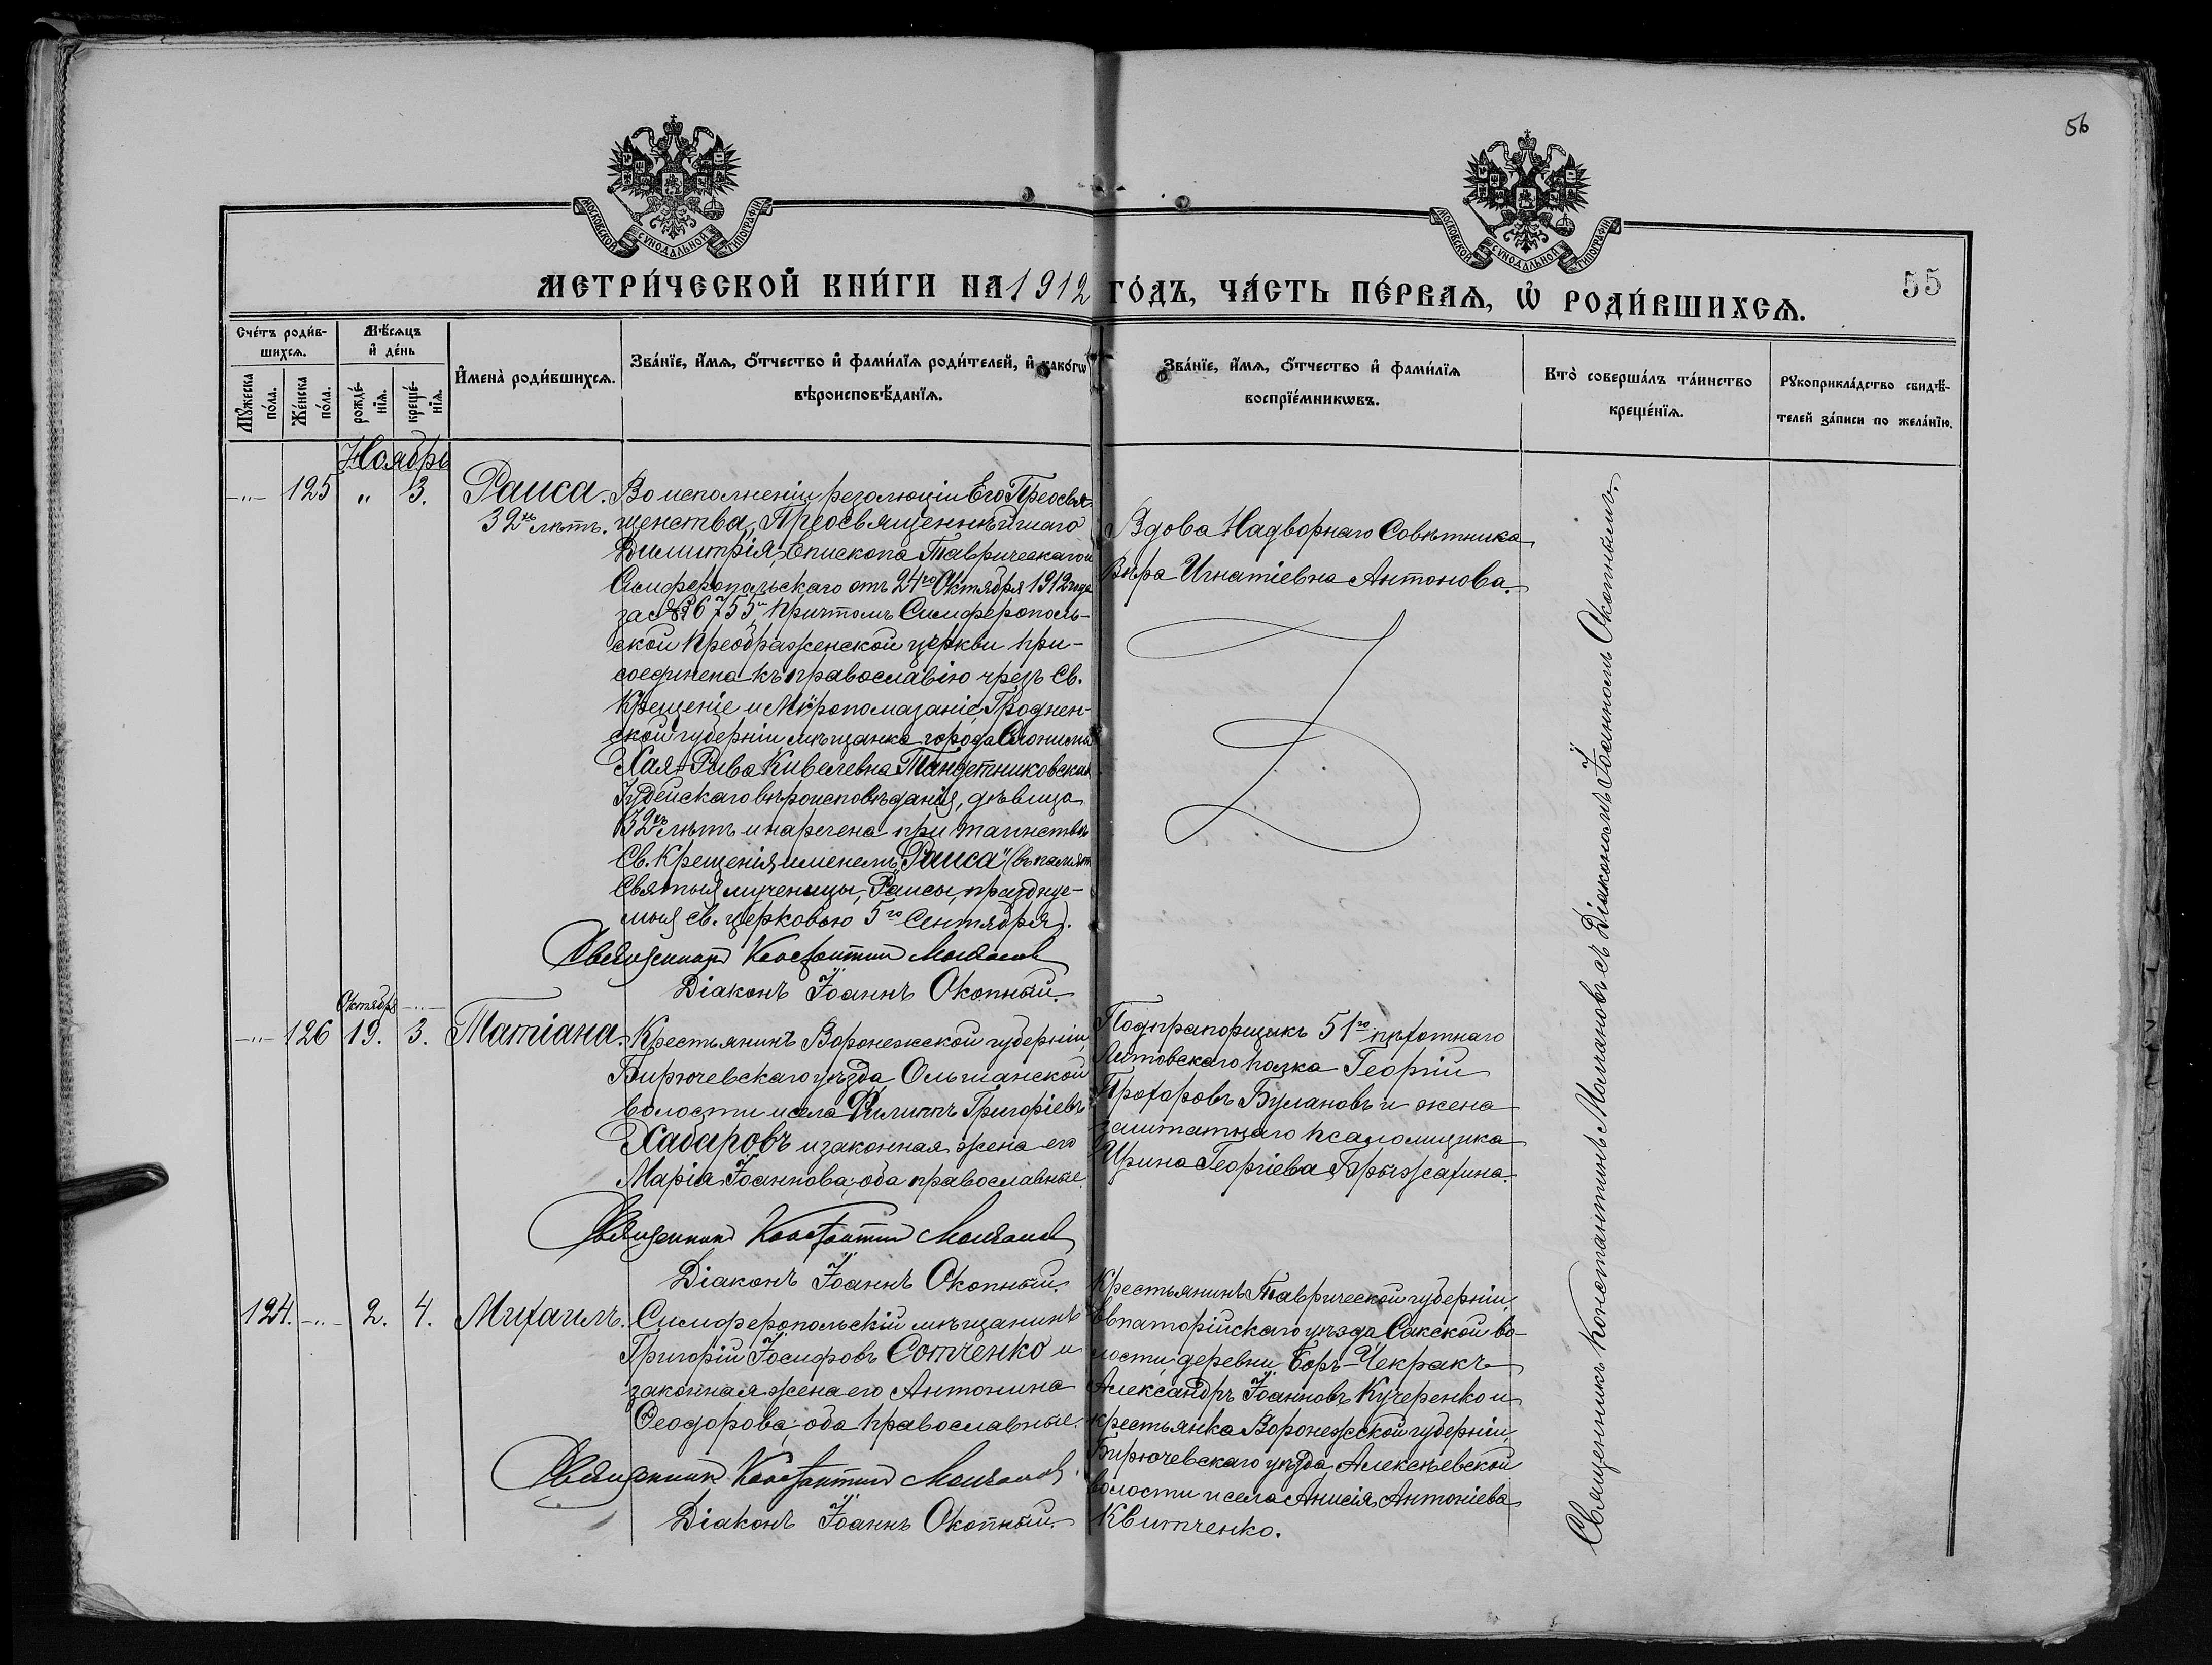 56
МОСКОВСКОЙ СѴНОДАЛЬНОЙ ТИПОГРАФІИ
МОСКОВСКОЙ СѴНОДАЛЬНОЙ ТИПОГРАФІИ
МЕТРИ́ЧЕСКОЙ КНИ́ГИ НА 1912 ГО́ДЪ, ЧА́СТЬ ПЕ́РВАѦ, Ѡ҆ РОДИ́ВШИХСѦ.
55
Сче́тъ роди́в-
шихсѧ.
Мꙋ́жеска
по́ла.
Же́нска
по́ла.
Мѣ́сѧцъ
и҆ де́нь
рожде́-
нїѧ.
креще́-
нїѧ.
И҆мена̀ роди́вшихсѧ.
Зва́нїе, и҆́мѧ, ѻ҆́тчество и҆ фами́лїѧ роди́телей, и҆ како́гѡ
вѣроисповѣ́данїѧ.
Зва́нїе, и҆́мѧ, ѻ҆́тчество и҆ фами́лїѧ
воспрїе́мникѡвъ.
Кто̀ соверша́лъ та́инство
креще́нїѧ.
Рꙋкоприкла́дство свидѣ́-
телей за́писи по жела́нїю.
Ноябрь
-„- 125 „ 3.
Раиса.
32хъ лѣтъ.
Во исполненіи резолюціи Его Преосвя-
щенства, Преосвященнѣйшаго
Димитрія, Епископа Таврическаго и
Симферопольскаго отъ 24го Октября 1912 года
за № 6755, Причтомъ Симферополь-
ской Преображенской церкви при-
соединена къ православію чрезъ Св.
Крещеніе и Мѵропомазаніе Гроднен-
ской губерніи мѣщанка города Слонима
Хая-Рива Кивелевна Тандетниковская
Іудейскаго вѣроисповѣданія, дѣвица
32хъ лѣтъ и наречена при таинствѣ
Св. Крещенія именемъ „Раиса“ (въ память
Святыя мученицы Раисы, праздnуе-
мыя св. церковью 5го Сентября).
Священникъ Константинъ Молчановъ
Діаконъ Іоаннъ Окопный.
Вдова Надворнаго Совѣтника
Вѣра Игнатіевна Антонова.
Октября -„-
-„- 126 19. 3.
Татіана.
Крестьянинъ Воронежской губерніи,
Бирючевскаго уѣзда, Ольшанской
волости и села Филиппъ Григоріевъ
Хабаровъ и законная жена его
Марія Іоаннова; оба православные.
Священникъ Константинъ Молчановъ
Діаконъ Іоаннъ Окопный.
Подпрапорщикъ 51го пѣхотнаго
Литовскаго полка Георгій
Прохоровъ Булановъ и жена
заштатнаго псаломщика
Ирина Георгіева Брызжахина.
124. -„- 2. 4.
Михаилъ.
Симферопольскій мѣщанинъ
Григорій Іосифовъ Сотченко и
законная жена его Антонина
Ѳеодорова; оба православные.
Священникъ Константинъ Молчановъ.
Діаконъ Іоаннъ Окопный.
Крестьянинъ Таврической губерніи,
Евпаторійскаго уѣзда, Сакской во-
лости, деревни Боръ-Чекракъ
Александръ Іоанновъ Кучеренко и
крестьянка Воронежской губерніи,
Бирючевскаго уѣзда, Алексѣевской
волости и села Анисія Антоніева
Квитченко.
Священникъ Константинъ Молчановъ съ Діакономъ Іоанномъ Окопнымъ.